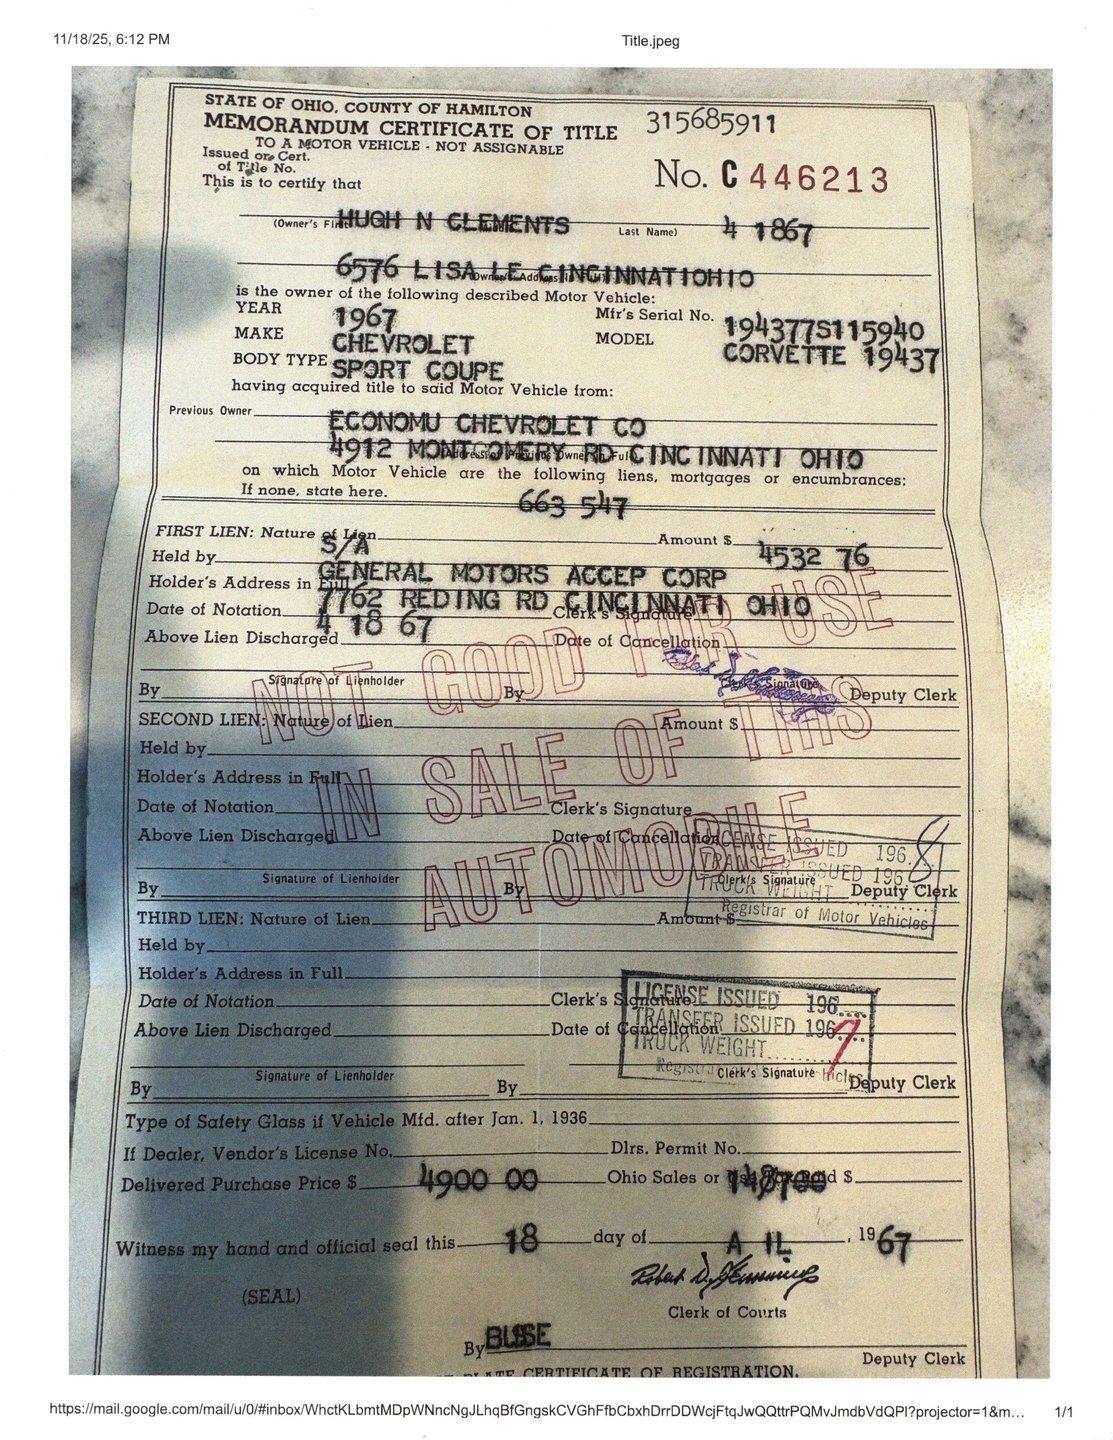 11/18/25, 6:12 PM Title.jpeg
STATE OF OHIO, COUNTY OF HAMILTON
MEMORANDUM CERTIFICATE OF TITLE 315685911
TO A MOTOR VEHICLE - NOT ASSIGNABLE
Issued on Cert.
of Title No. No. C 446213
This is to certify that
HUGH N CLEMENTS 4 1867
(Owner's First Last Name)
6576 LISA LE CINCINNATI OHIO
is the owner of the following described Motor Vehicle:
YEAR 1967 Mfr's Serial No. 194377S115940
MAKE CHEVROLET MODEL CORVETTE 19437
BODY TYPE SPORT COUPE
having acquired title to said Motor Vehicle from:
Previous Owner ECONOMU CHEVROLET CO
4912 MONTGOMERY RD CINCINNATI OHIO
(Address of Previous Owner in Full)
on which Motor Vehicle are the following liens, mortgages or encumbrances:
If none, state here. 663 547
FIRST LIEN: Nature of Lien S/A Amount $ 4532 76
Held by GENERAL MOTORS ACCEP CORP
Holder's Address in Full 7762 REDING RD CINCINNATI OHIO
Date of Notation 4 18 67 Clerk's Signature
Above Lien Discharged Date of Cancellation
Signature of Lienholder Clerk's Signature
By By Deputy Clerk
NOT GOOD FOR USE
IN SALE OF THIS
AUTOMOBILE
SECOND LIEN: Nature of Lien Amount $
Held by
Holder's Address in Full
Date of Notation Clerk's Signature
Above Lien Discharged Date of Cancellation
LICENSE ISSUED 196
TRANSFER ISSUED 196 8
TRUCK WEIGHT
Registrar of Motor Vehicles
Signature of Lienholder Clerk's Signature
By By Deputy Clerk
THIRD LIEN: Nature of Lien Amount $
Held by
Holder's Address in Full
Date of Notation Clerk's Signature
Above Lien Discharged Date of Cancellation
LICENSE ISSUED 196....
TRANSFER ISSUED 196 7
TRUCK WEIGHT
Signature of Lienholder Clerk's Signature
By By Deputy Clerk
Type of Safety Glass if Vehicle Mfd. after Jan. 1, 1936
If Dealer, Vendor's License No. Dlrs. Permit No.
Delivered Purchase Price $ 4900 00 Ohio Sales or Use Tax Paid $
Witness my hand and official seal this 18 day of A IL, 1967
Robert D. Jennings
(SEAL) Clerk of Courts
By BUSE
Deputy Clerk
CERTIFICATE OF REGISTRATION.
https://mail.google.com/mail/u/0/#inbox/WhctKLbmtMDpWNncNgJLhqBfGngskCVGhFfbCbxhDrrDDWcjFtqJwQQttrPQMvJmdbVdQPl?projector=1&m... 1/1